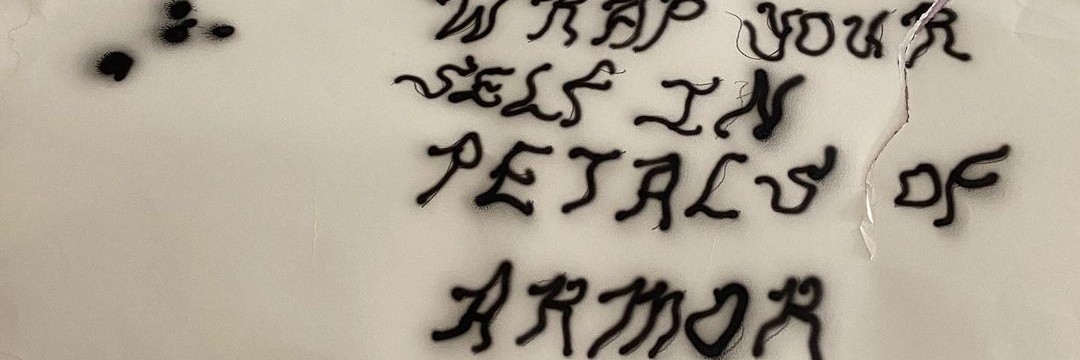 WRAP YOUR
SELF IN
PETALS OF
ARMOR